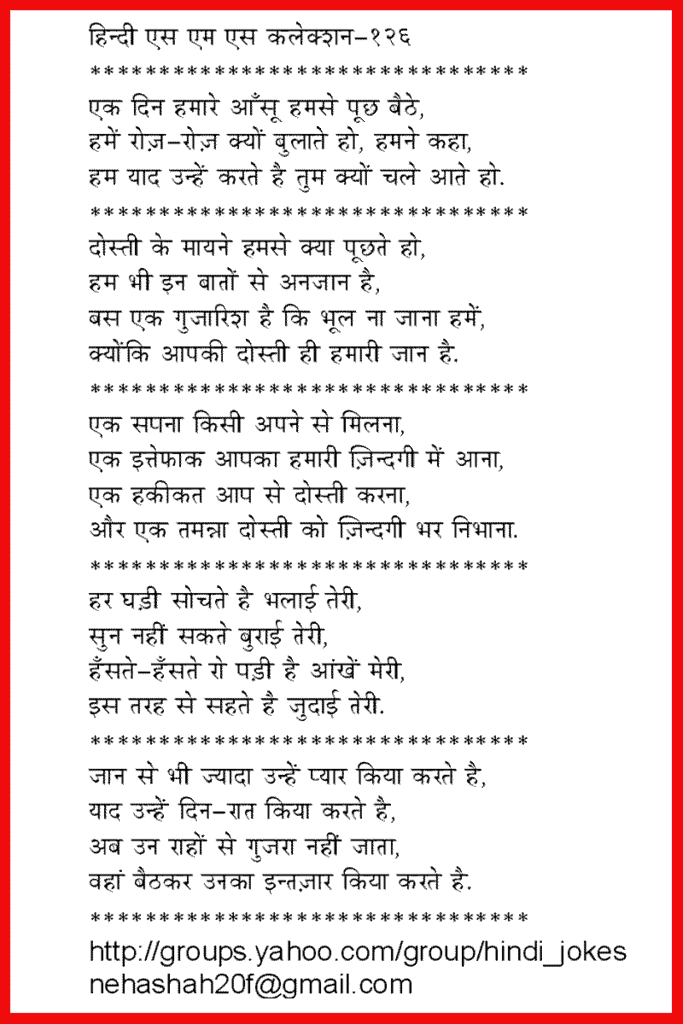 हिन्दी एस एम एस कलेक्शन-१२६
********************************
एक दिन हमारे आँसू हमसे पूछ बैठे,
हमें रोज़-रोज़ क्यों बुलाते हो, हमने कहा,
हम याद उन्हें करते है तुम क्यों चले आते हो.
********************************
दोस्ती के मायने हमसे क्या पूछते हो,
हम भी इन बातों से अनजान है,
बस एक गुजारिश है कि भूल ना जाना हमें,
क्योंकि आपकी दोस्ती ही हमारी जान है.
********************************
एक सपना किसी अपने से मिलना,
एक इत्तेफाक आपका हमारी ज़िन्दगी में आना,
एक हकीकत आप से दोस्ती करना,
और एक तमन्ना दोस्ती को ज़िन्दगी भर निभाना.
********************************
हर घड़ी सोचते है भलाई तेरी,
सुन नहीं सकते बुराई तेरी,
हँसते-हँसते रो पड़ी है आंखें मेरी,
इस तरह से सहते है जुदाई तेरी.
********************************
जान से भी ज्यादा उन्हें प्यार किया करते है,
याद उन्हें दिन-रात किया करते है,
अब उन राहों से गुजरा नहीं जाता,
वहां बैठकर उनका इन्तज़ार किया करते है.
********************************
http://groups.yahoo.com/group/hindi_jokes
nehashah20f@gmail.com